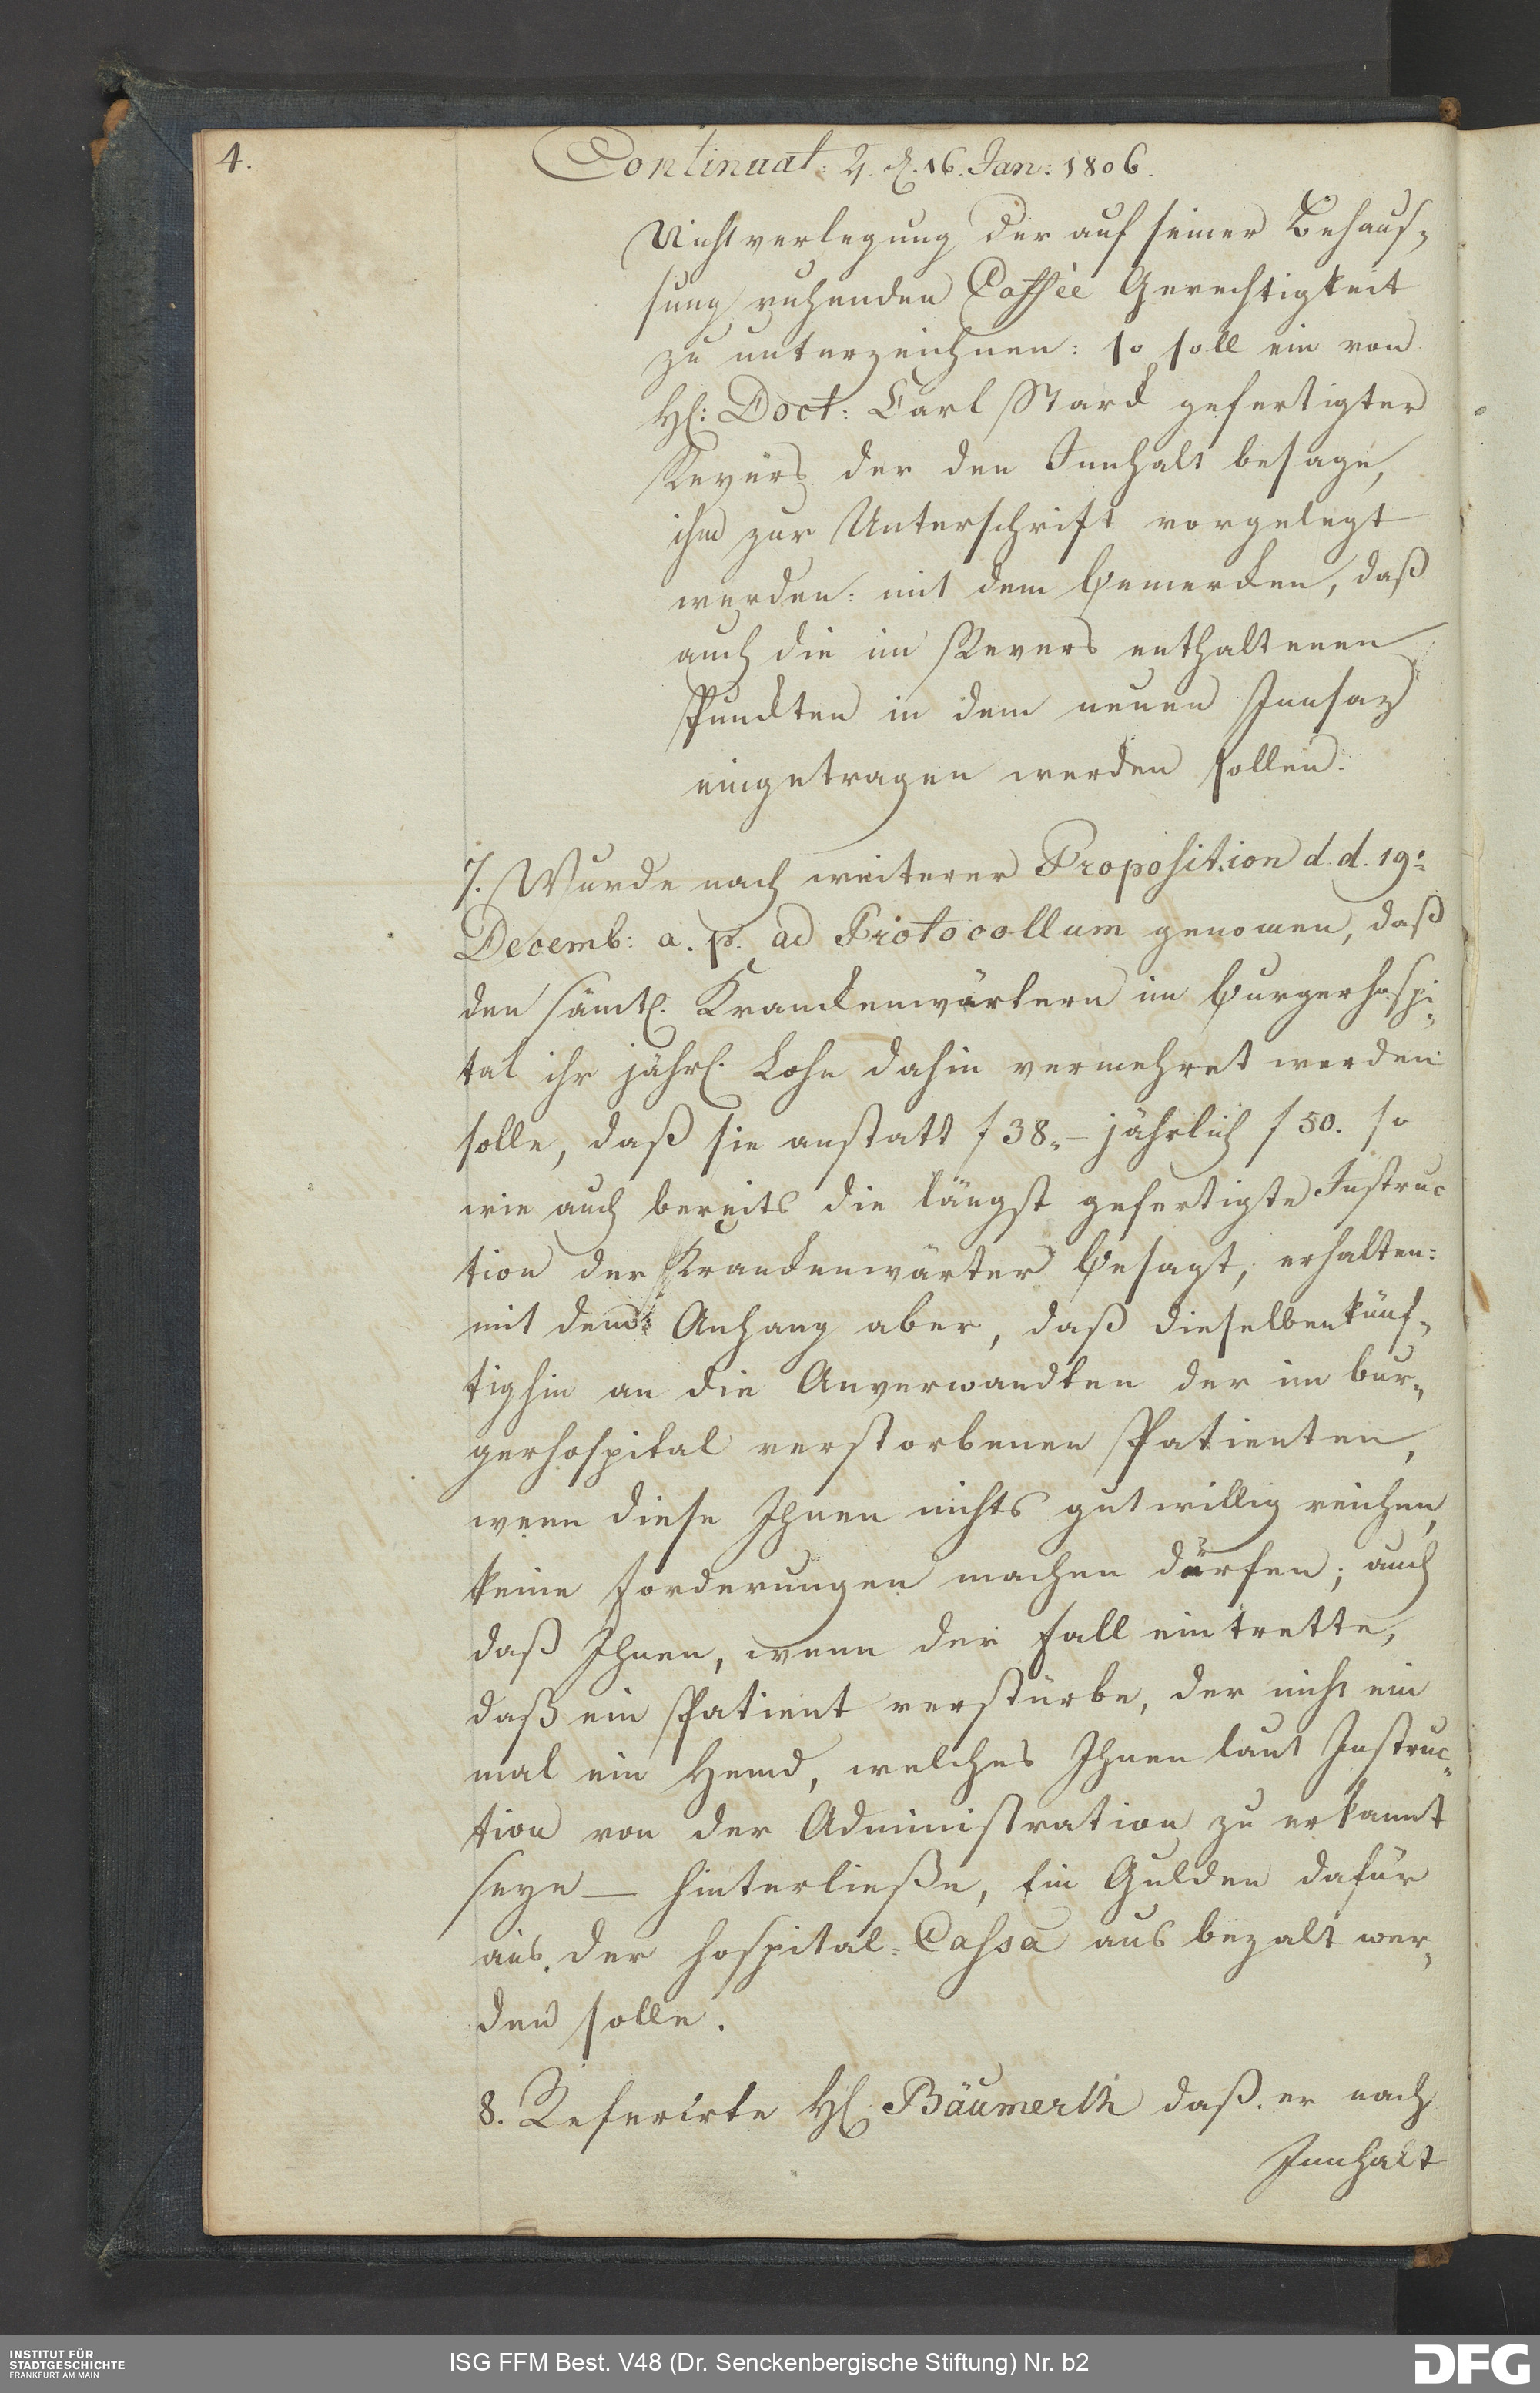 4.
Continuat: 4. d. 16. Jan: 1806.
Nichtverlegung der auf seiner Behauß„
sung ruhenden Caffèe Gerechtigkeit
zu unterzeichnen: so soll ein von
H: Doct: Carl Starck gefertigter
Revers der den Innhalt besage,
ihm zur Unterschrift vorgelegt
werden: mit dem Bemercken, daß
auch die im Revers enthaltenen
Punckten in dem neuen Innsaz
eingetragen werden sollen.
7. Wurde nach weiterer Proposition d. d. 19:
Decemb: a. p. ad Protocollum genomen, daß
den sämtl. Kranckenwärtern im Burgerhospi„
tal ihr jährl. Lohn dahin vermehret werden
solle, daß sie anstatt f 38„ – jährlich f 50. so
wie auch bereits die längst gefertigte Instruc
tion der Kranckenwärter besagt, erhalten:
mit dem Anhang aber, daß dieselben künf„
tighin an die Anverwandten der im bur„
gerhospital verstorbenen Patienten,
wenn diese Ihnen nichts gutwillig reichen,
keine Forderungen machen dürfen; auch
daß Ihnen, wenn der Fall eintrette,
daß ein Patient verstürbe, der nicht ein
mal ein Hemd, welches Ihnen laut Instruc„
tion von der Administration zu erkannt
seye — hinterließe, Ein Gulden dafür
aus der Hospital-Cassa aus bezalt wer„
den solle.
8. Referirte H. Bäumerth daß er nach
Innhalt
INSTITUT FÜR
STADTGESCHICHTE
FRANKFURT AM MAIN
ISG FFM Best. V48 (Dr. Senckenbergische Stiftung) Nr. b2
DFG